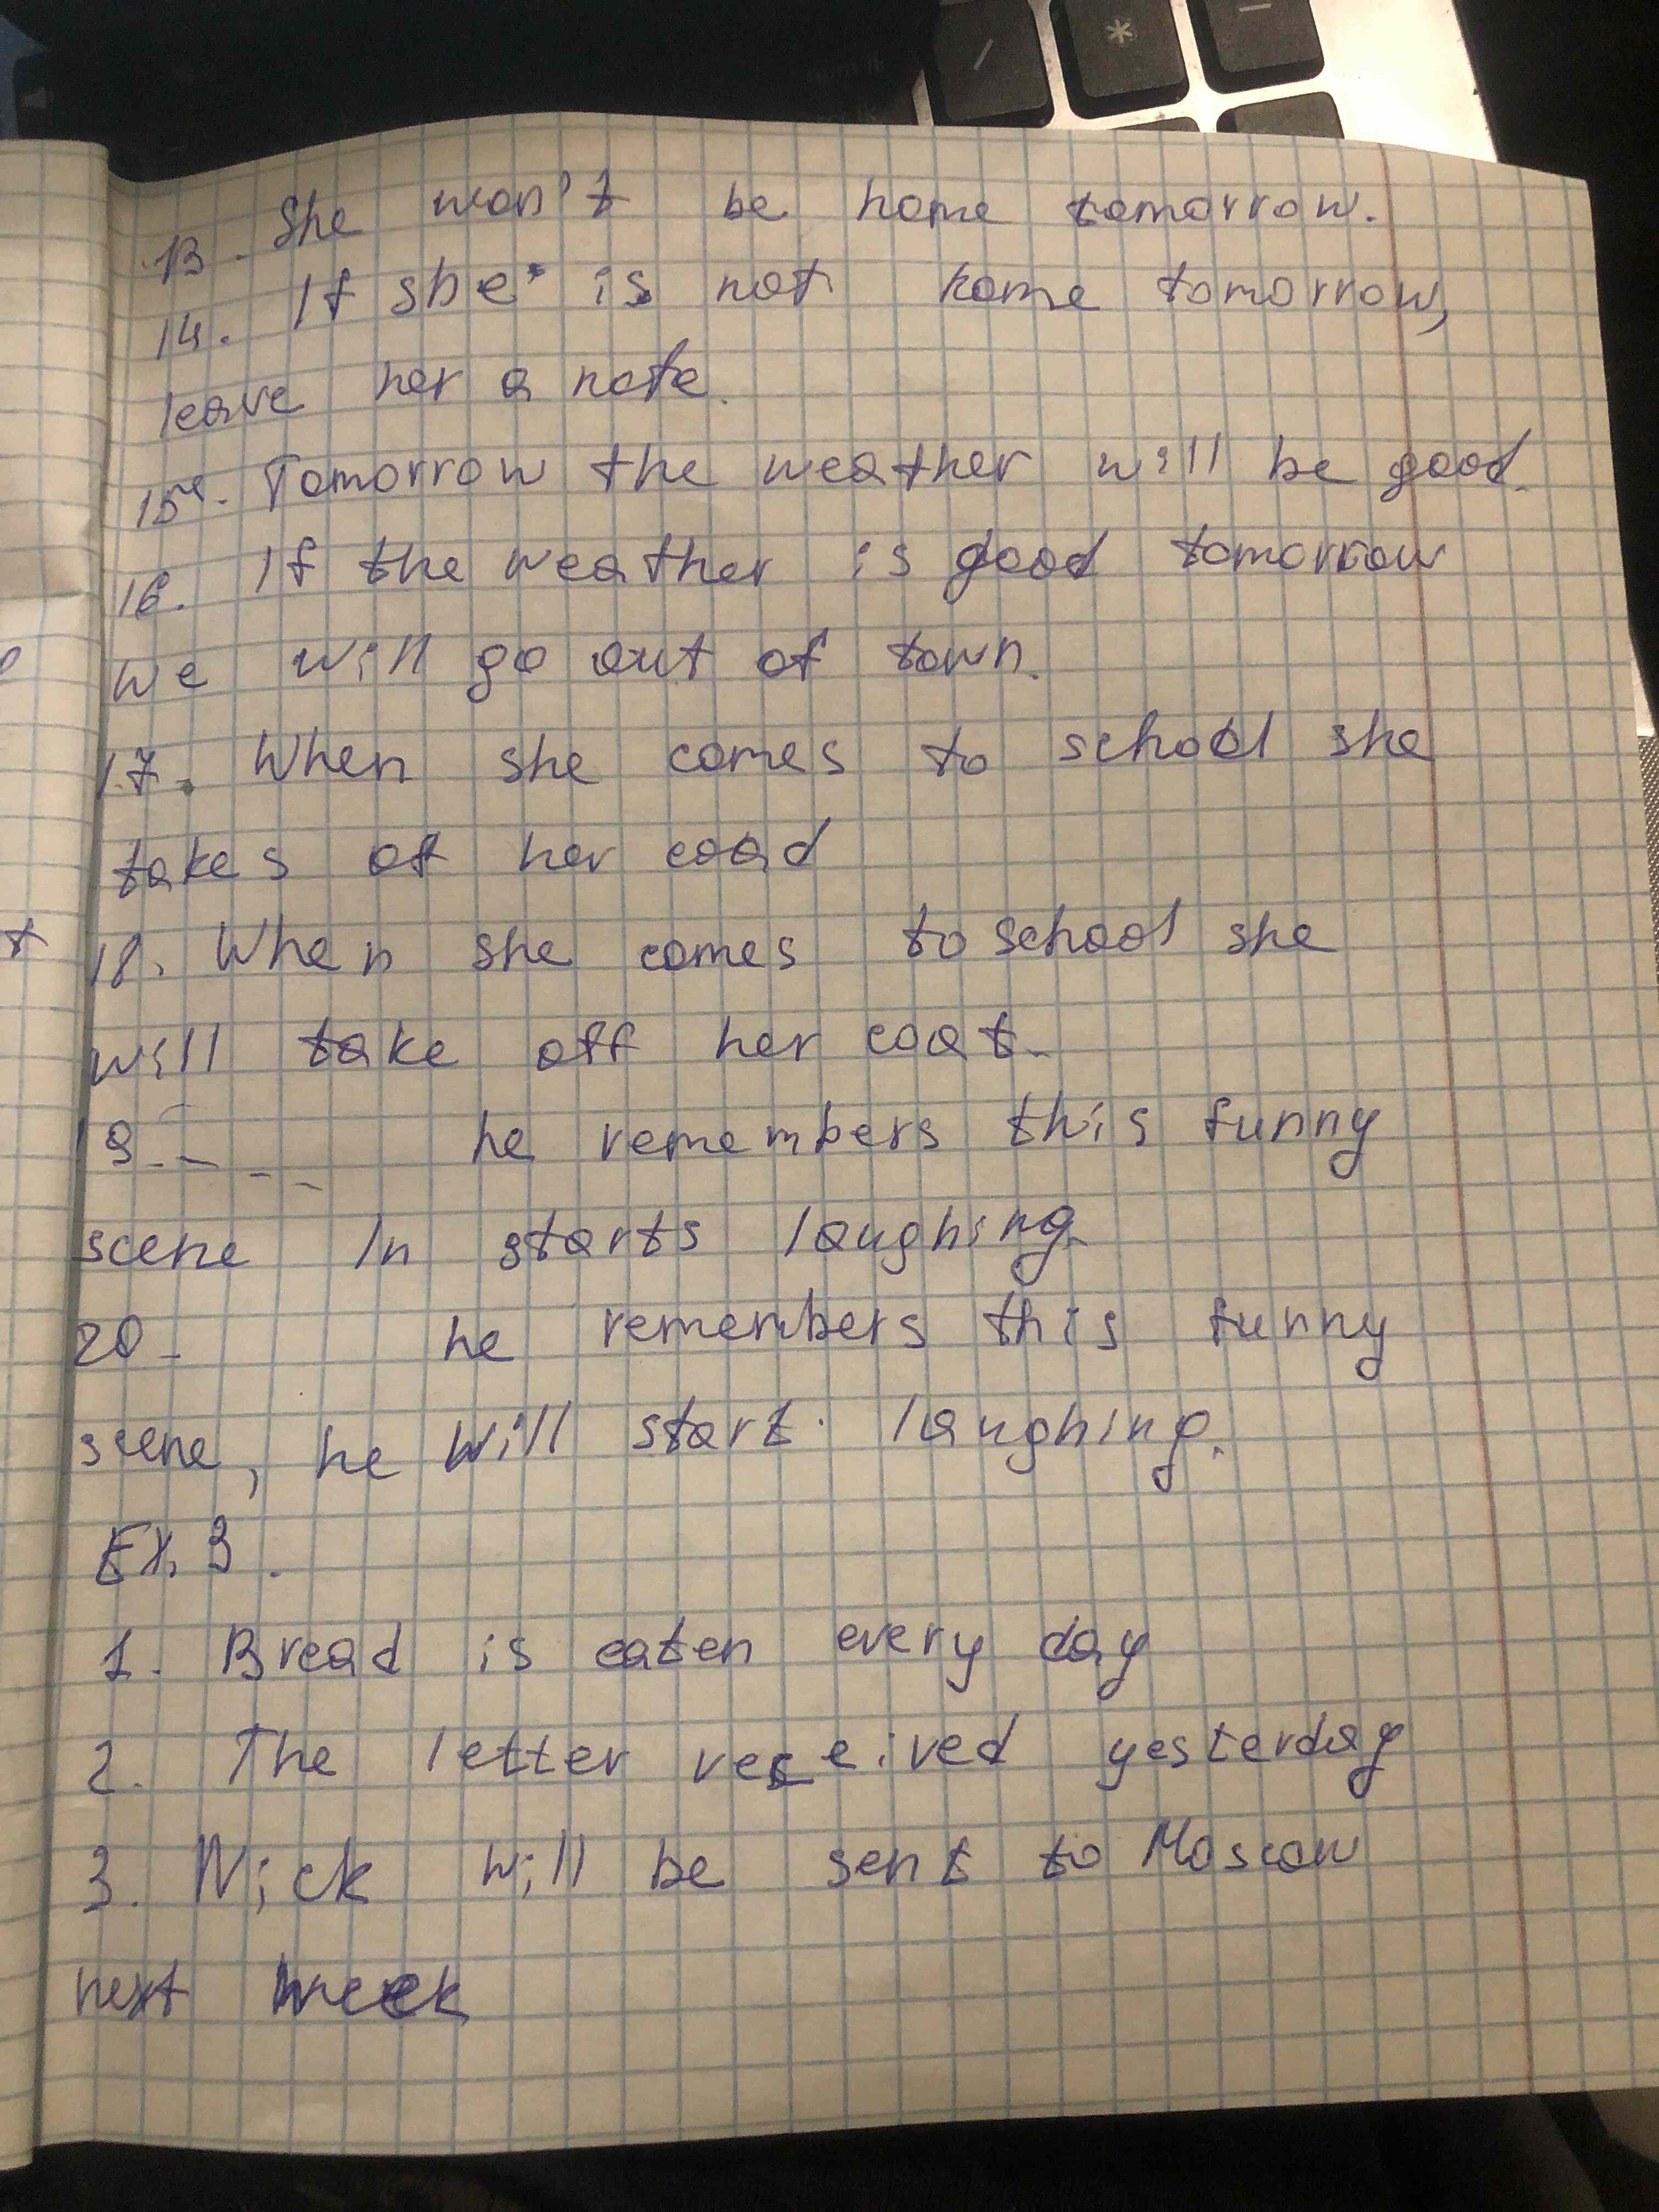 13. She won't be home tomorrow.
14. If she is not home tomorrow,
leave her a note.
15. Tomorrow the weather will be good.
16. If the weather is good tomorrow
we will go out of town.
17. When she comes to school she
takes of her coad
18. When she comes to school she
will take off her coat.
19. - - - he remembers this funny
scene In starts laughing.
20. he remembers this funny
scene, he will start laughing.
Ex. 3.
1. Bread is eaten every day
2. The letter received yesterday
3. Nick will be sent to Moscow
next week